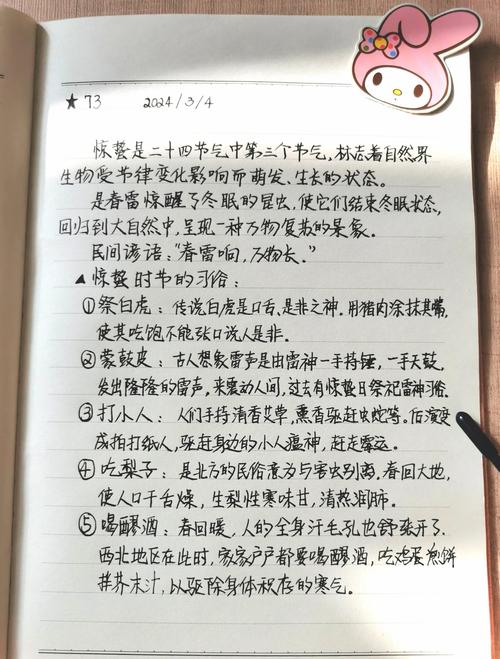 ★ 73 2024/3/4
惊蛰是二十四节气中第三个节气,标志着自然界
生物受节律变化影响而萌发、生长的状态。
是春雷惊醒了冬眠的昆虫,使它们结束冬眠状态,
回归到大自然中,呈现一种万物复苏的景象。
民间谚语:“春雷响,万物长。”
▲惊蛰时节的习俗:
①祭白虎:传说白虎是口舌、是非之神。用猪肉涂抹其嘴,
使其吃饱不能张口说人是非。
②蒙鼓皮:古人想象雷声是由雷神一手持锤,一手天鼓,
发出隆隆的雷声,来震动人间,过去有惊蛰日祭祀雷神习俗。
③打小人:人们手持清香艾草,熏香驱赶虫蛇等。后演变
成拍打纸人,驱赶身边的小人瘟神,赶走霉运。
④吃梨子:是北方的民俗意为与害虫别离,春回大地,
使人口干舌燥,生梨性寒味甘,清热润肺。
⑤喝醪酒:春回暖,人的全身汗毛孔也舒张开了.
西北地区在此时,家家户户都要喝醪酒,吃鸡蛋煎饼
拌芥末汁,以驱除身体积存的寒气。